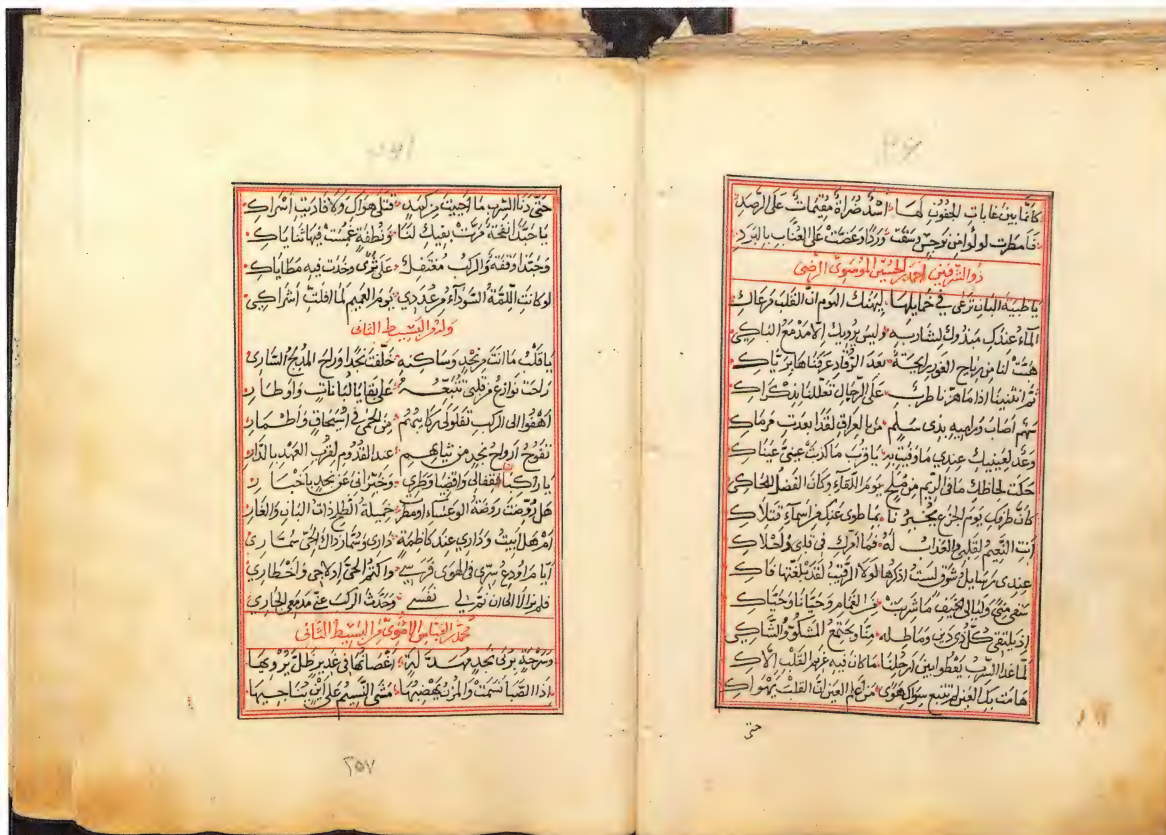 كأنما بين غابات الجفون لها * أسد ضراة مقيمات على الرصد
فأمطرت لؤلؤا من نرجس وسقت * وردا وعضت على العناب بالبرد
ذو الشرفين أحمد الحسيني الموسوي الرضي
يا ظبية البان ترعى في خمايلها * ليهنك اليوم ان القلب مرعاك
الماء عندك مبذول لشاربه * وليس يرويك إلا مدمع الباكي
هبت لنا من رياح الغور رايحة * بعد الرقاد عرفناها برياك
ثم انثنينا اذا ما هزنا طرب * على الرحال تعللنا بذكراك
سهم أصاب وراميه بذي سلم * من بالعراق لقد ابعدت مرماك
وعد لعينيك عندي ما وفيت به * يا قرب ما كذبت عيني عيناك
حكت لحاظك ما في الريم من ملح * يوم اللقاء وكان الفضل للحاكي
كأن طرفك يوم الجزع يخبرنا * بما طوى عنك من اسماء قتلاك
أنت النعيم لقلبي والعذاب له * فما أمرك في قلبي وأحلاك
عندي رسايل شوق لست اذكرها * لولا الرقيب لقد بلغتها فاك
سقى منى وليالي الخيف ما شربت * من الغمام وحيانا وحياك
إذ يلتقي كل ذي دين وماطله * منا ويجتمع المشكو والشاكي
لما غدا السرب يعطو بين ارحلنا * ما كان فيه غريم القلب إلاك
هامت بك العين لم تتبع سواك هوى * من أعلم العين ان القلب يهواك
حتى
حتى دنا السرب ما أحييت من كمد * قتلى هواك ولا فاديت أسراك
يا حبذا نفحة مرت بفيك لنا * ونطفة غمست فيها ثناياك
وحبذا وقفة والركب مغتفل * على ثرى وخدت فيه مطاياك
لو كانت اللمة السوداء من عددي * يوم الغميم لما افلت أشراكي
وله من البسيط الثاني
يا قلب ما أنت من نجد وساكنه * خلفت نجدا وراء المدلج الساري
راحت نوازع من قلبي تتبعه * على بقايا لبانات وأوطار
أهفوا الى الركب تعلو لي ركابهم * من الحمى في اسيحاق وأطمار
تفوح أرواح نجد من ثيابهم * عند القدوم لقرب العهد بالدار
يا راكبان قفا لي واقضيا وطري * وخبراني عن نجد بأخبار
هل روضت روضة الوعساء أو مطرت * خميلة الطلح ذات البان والغار
أم هل أبيت وداري عند كاظمة * داري وسمار ذاك الحي سماري
أيام اودع سري في الهوى فرسي * واكتم الحي إدلاجي وأخطاري
فلم يزالا الى ان نم بي نفسي * وحدث الركب عني مدمعي الجاري
محمد بن العباس الأموي من البسيط الثاني
وسرحة بربى نجد مهدلة * أغصانها في غدير ظل يرويها
إذا الصبا نسمت والمزن يهضبها * مشى النسيم على اين يناجيها
٢٥٧